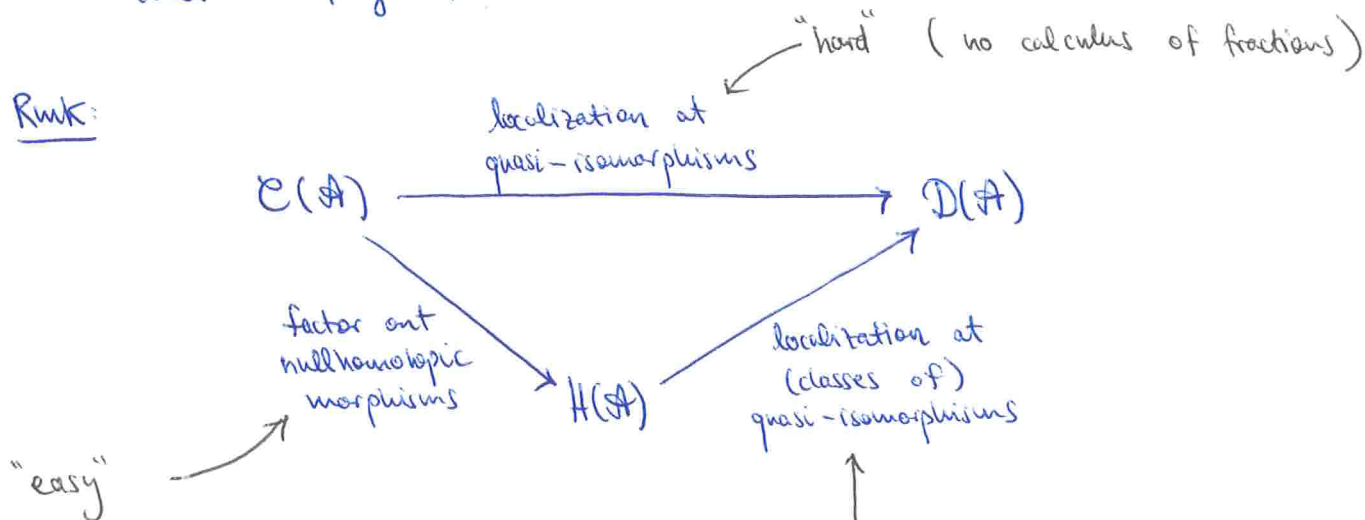 "hard" (no calculus of fractions)
Rmk:
localization at
quasi-isomorphisms
C(A) D(A)
factor out
nullhomotopic
morphisms
localization at
(classes of)
quasi-isomorphisms
H(A)
"easy"